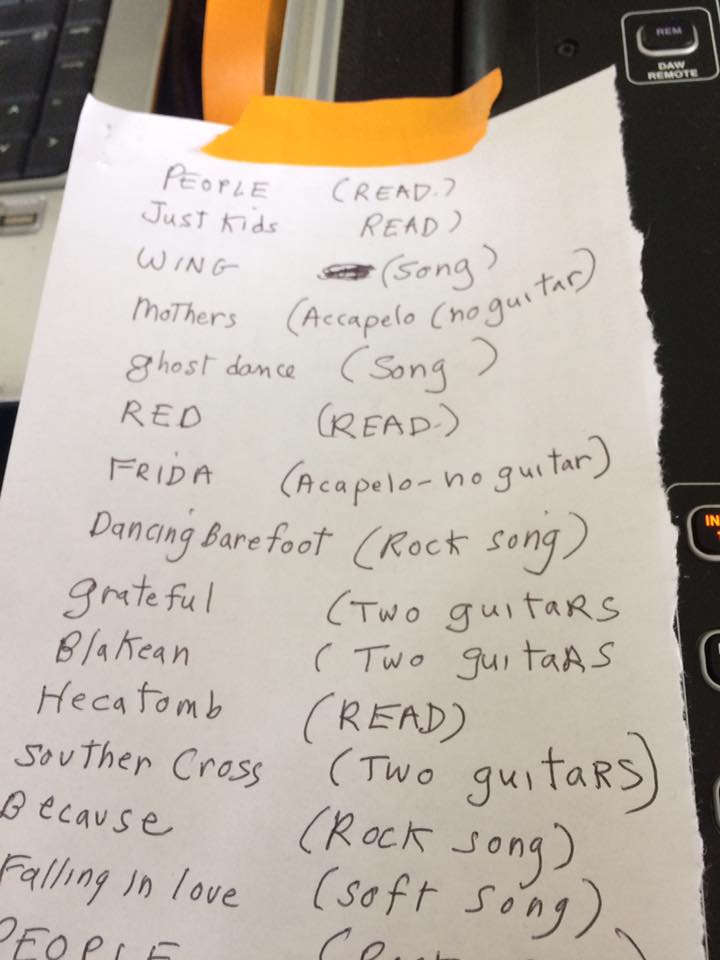 REM
DAW
REMOTE
PEOPLE (READ.)
Just Kids READ)
WING (Song)
Mothers (Accapelo (no guitar)
ghost dance (Song)
RED (READ.)
FRIDA (Acapelo - no guitar)
Dancing Barefoot (Rock song)
IN
grateful (Two guitaRS
Blakean (Two guitaAS
Hecatomb (READ)
Souther Cross (Two guitaRS)
Because (Rock song)
Falling in love (soft song)
PEOPLE